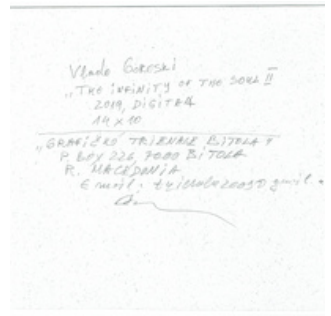 Vlado Goreski
"THE INFINITY OF THE SOUL II
2019, DIGITAL
14 x 10
"GRAFIČKO TRIENALE BITOLA"
P. BOX 226, 7000 BITOLA
R. MACEDONIA
Email: